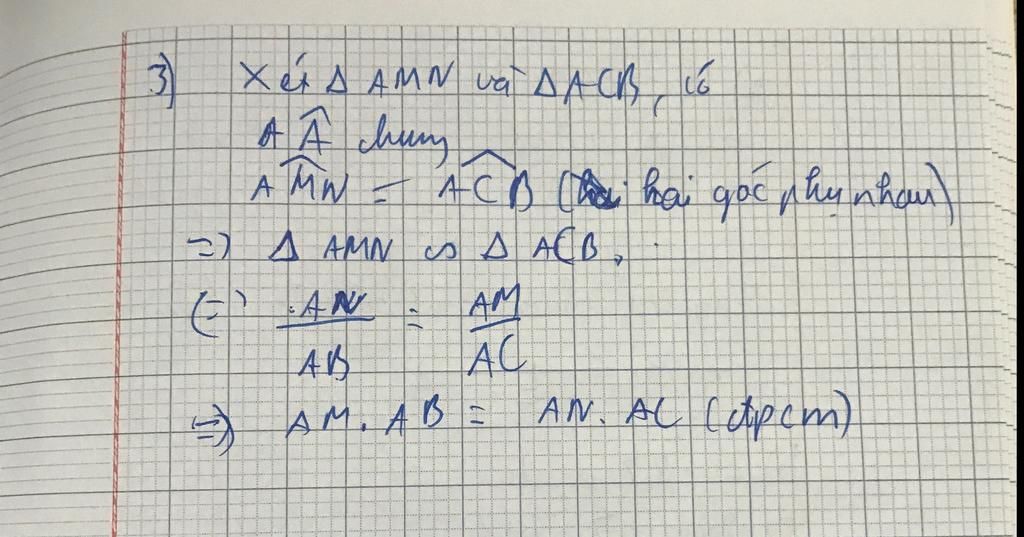 3) Xét Δ AMN và Δ ACB, có
Â chung
AM̂N = AĈB (hai góc phụ nhau)
=> Δ AMN ∽ Δ ACB.
(=) AN/AB = AM/AC
=> AM. AB = AN. AC (đpcm)